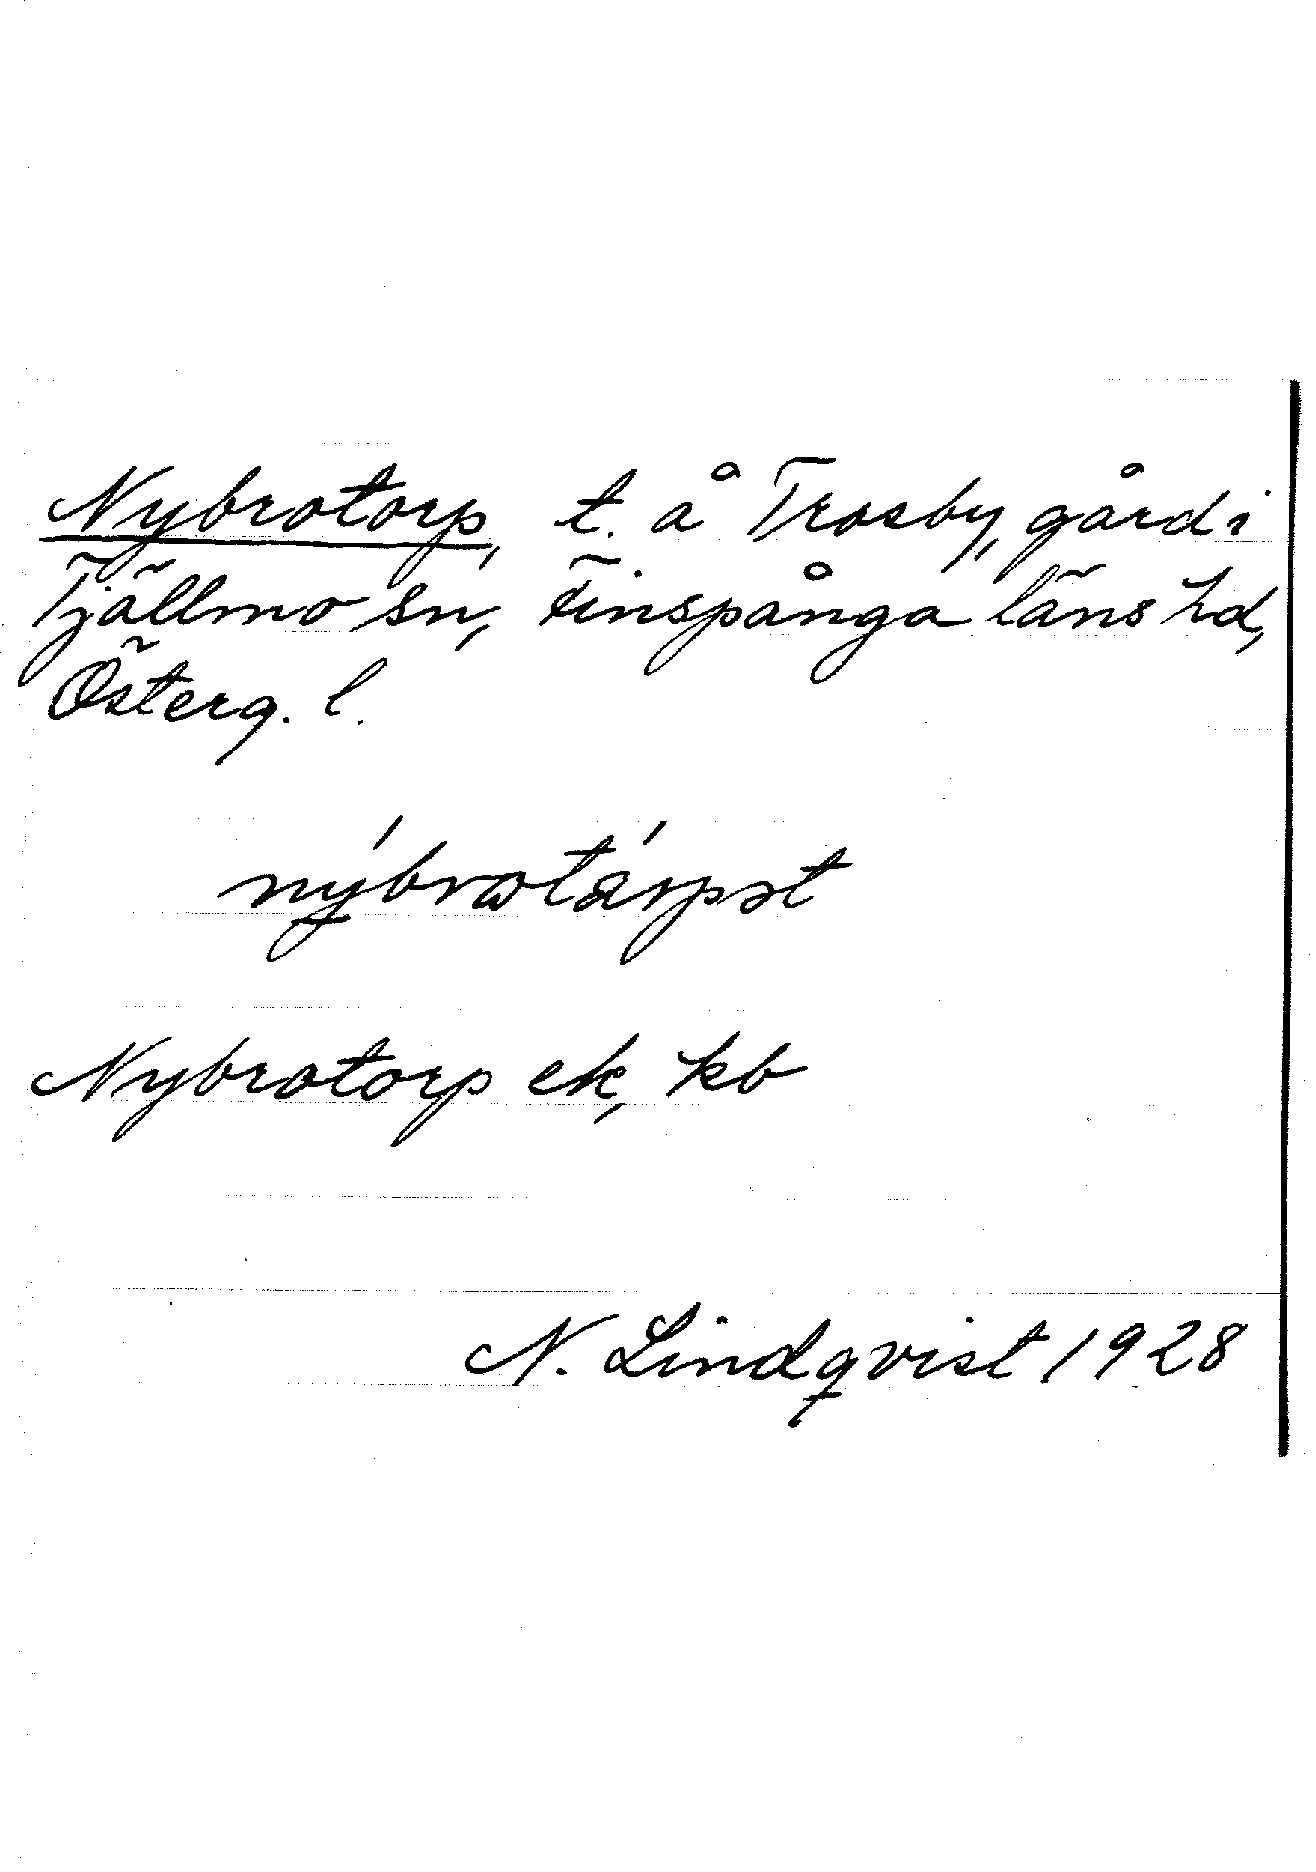 Nybrotorp, t. å Trosby, gård i
Tjällmo sn, Finspånga läns hd,
Österg. l.
nýbrωtárpət
Nybrotorp ek, kb
N. Lindqvist 1928